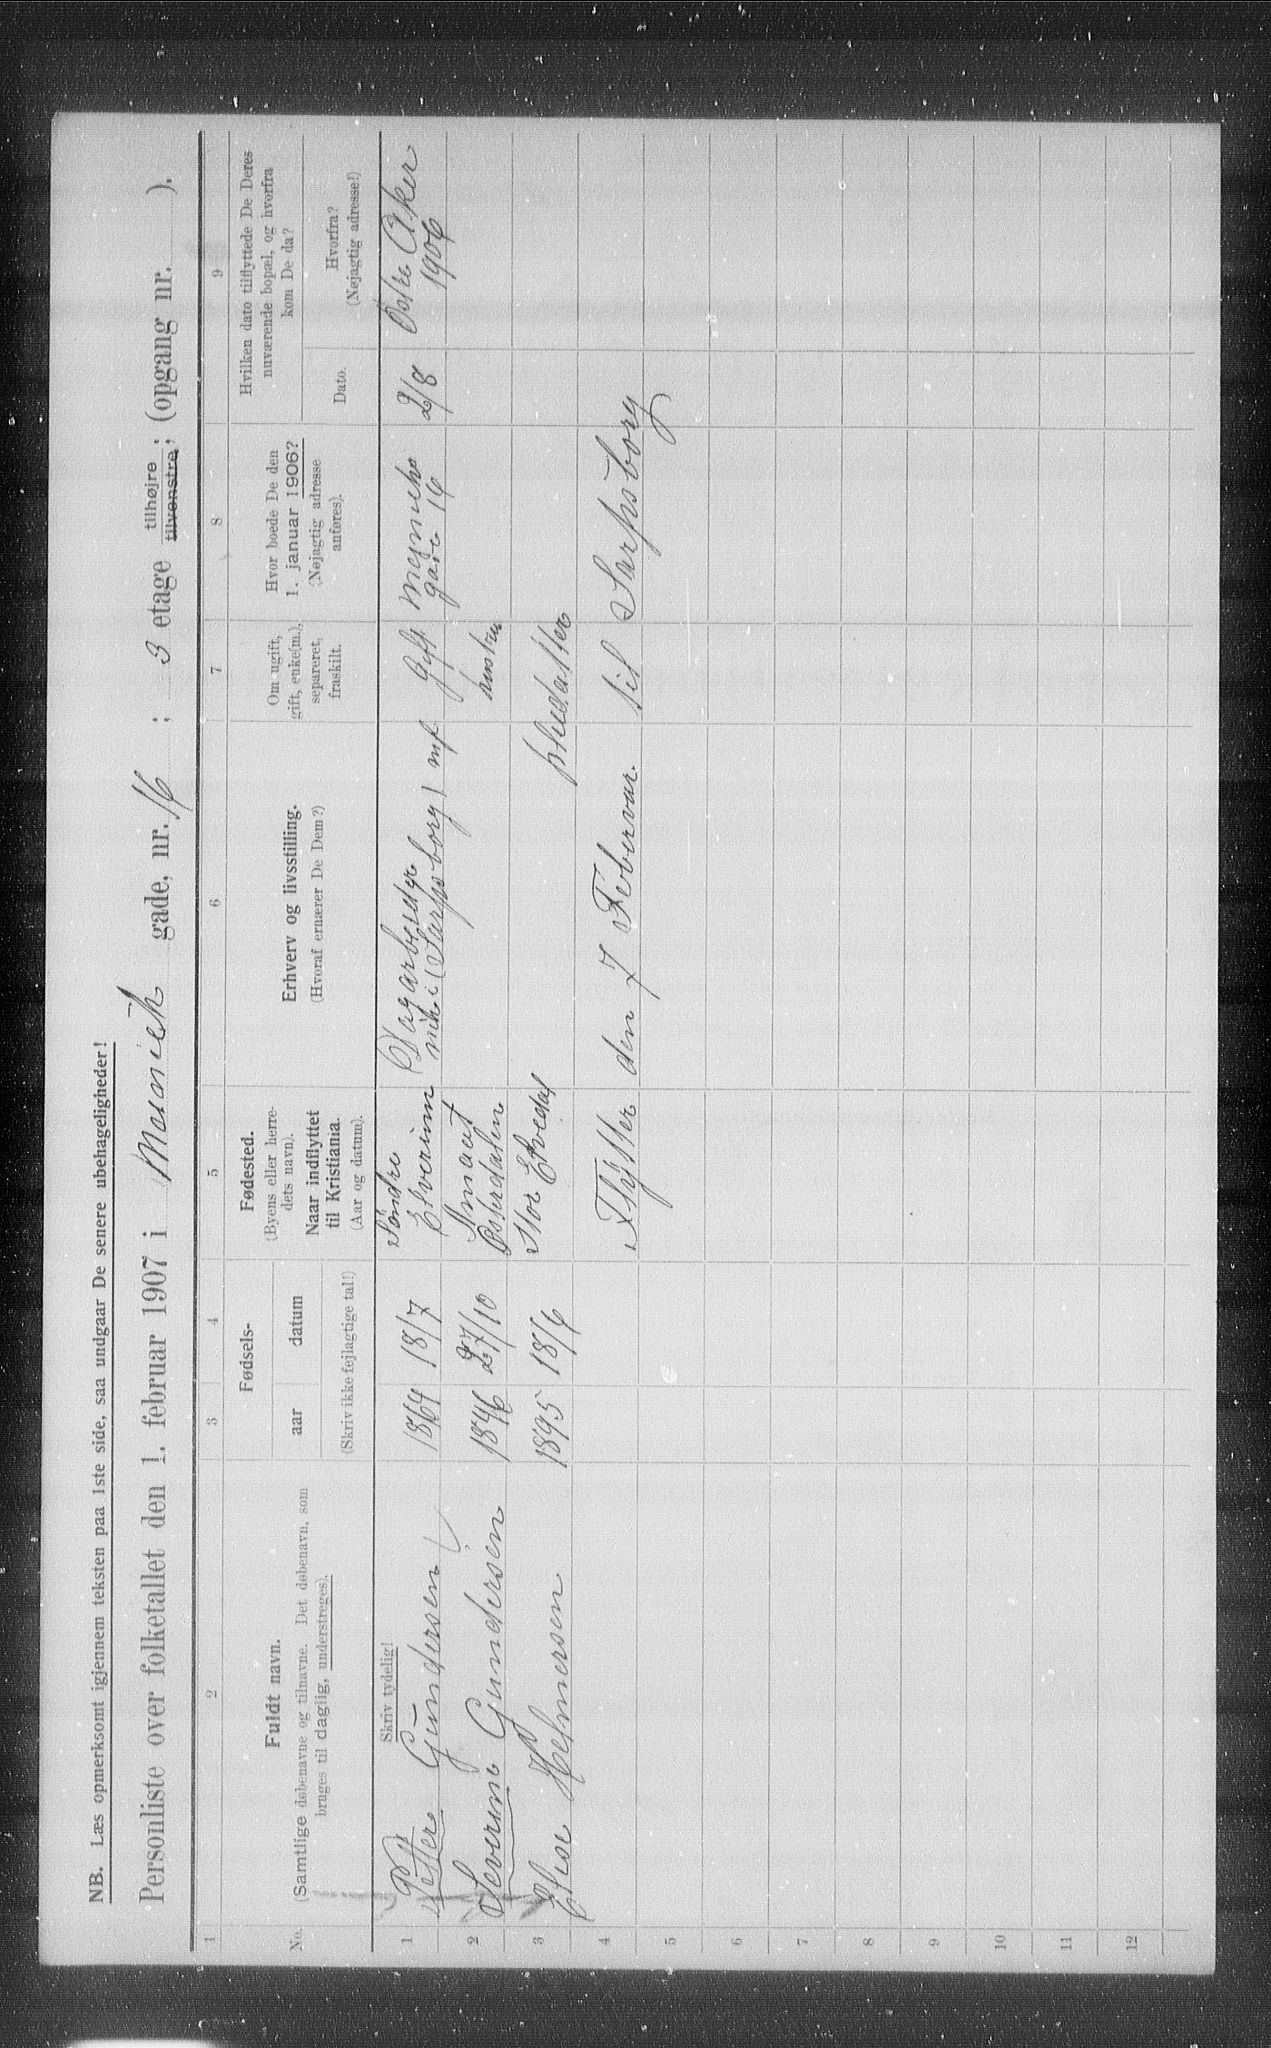 NB. Læs opmerksomt igjennem teksten paa 1ste side, saa undgaar De senere ubehageligheder!
Personliste over folketallet den 1. februar 1907 i gade, nr. 16 ; 3 etage tilhøjre tilvenstre; (opgang nr. ).
1 2 3 4 5 6 7 8 9
No.
Fuldt navn.
(Samtlige døbenavne og tilnavne. Det døbenavn, som
bruges til daglig, understreges).
Fødsels-
aar datum
(Skriv ikke fejlagtige tal!)
Fødested.
(Byens eller herre-
dets navn).
Naar indflyttet
til Kristiania.
(Aar og datum).
Erhverv og livsstilling.
(Hvoraf ernærer De Dem?)
Om ugift,
gift, enke(m.),
separeret,
fraskilt.
Hvor boede De den
1. januar 1906?
(Nøjagtig adresse
anføres).
Hvilken dato tilflyttede De Deres
nuværende bopæl, og hvorfra
kom De da?
Dato.
Hvorfra?
(Nøjagtig adresse!)
Skriv tydelig!
1 Petter Gundersen 1864 18/7 Søndre Elverum Dagarbeider (Sarpsborg) mf Gift gade 16 2/8 Østre Aker 1906
2 Severine Gundersen 1846 27/10 Aamaat Østerdalen hustru
3 Elise Helmersen 1895 18/6 Stor Elvedal pleiedatter
4 Flytter den 7 Februar til Sarpsborg
5
6
7
8
9
10
11
12